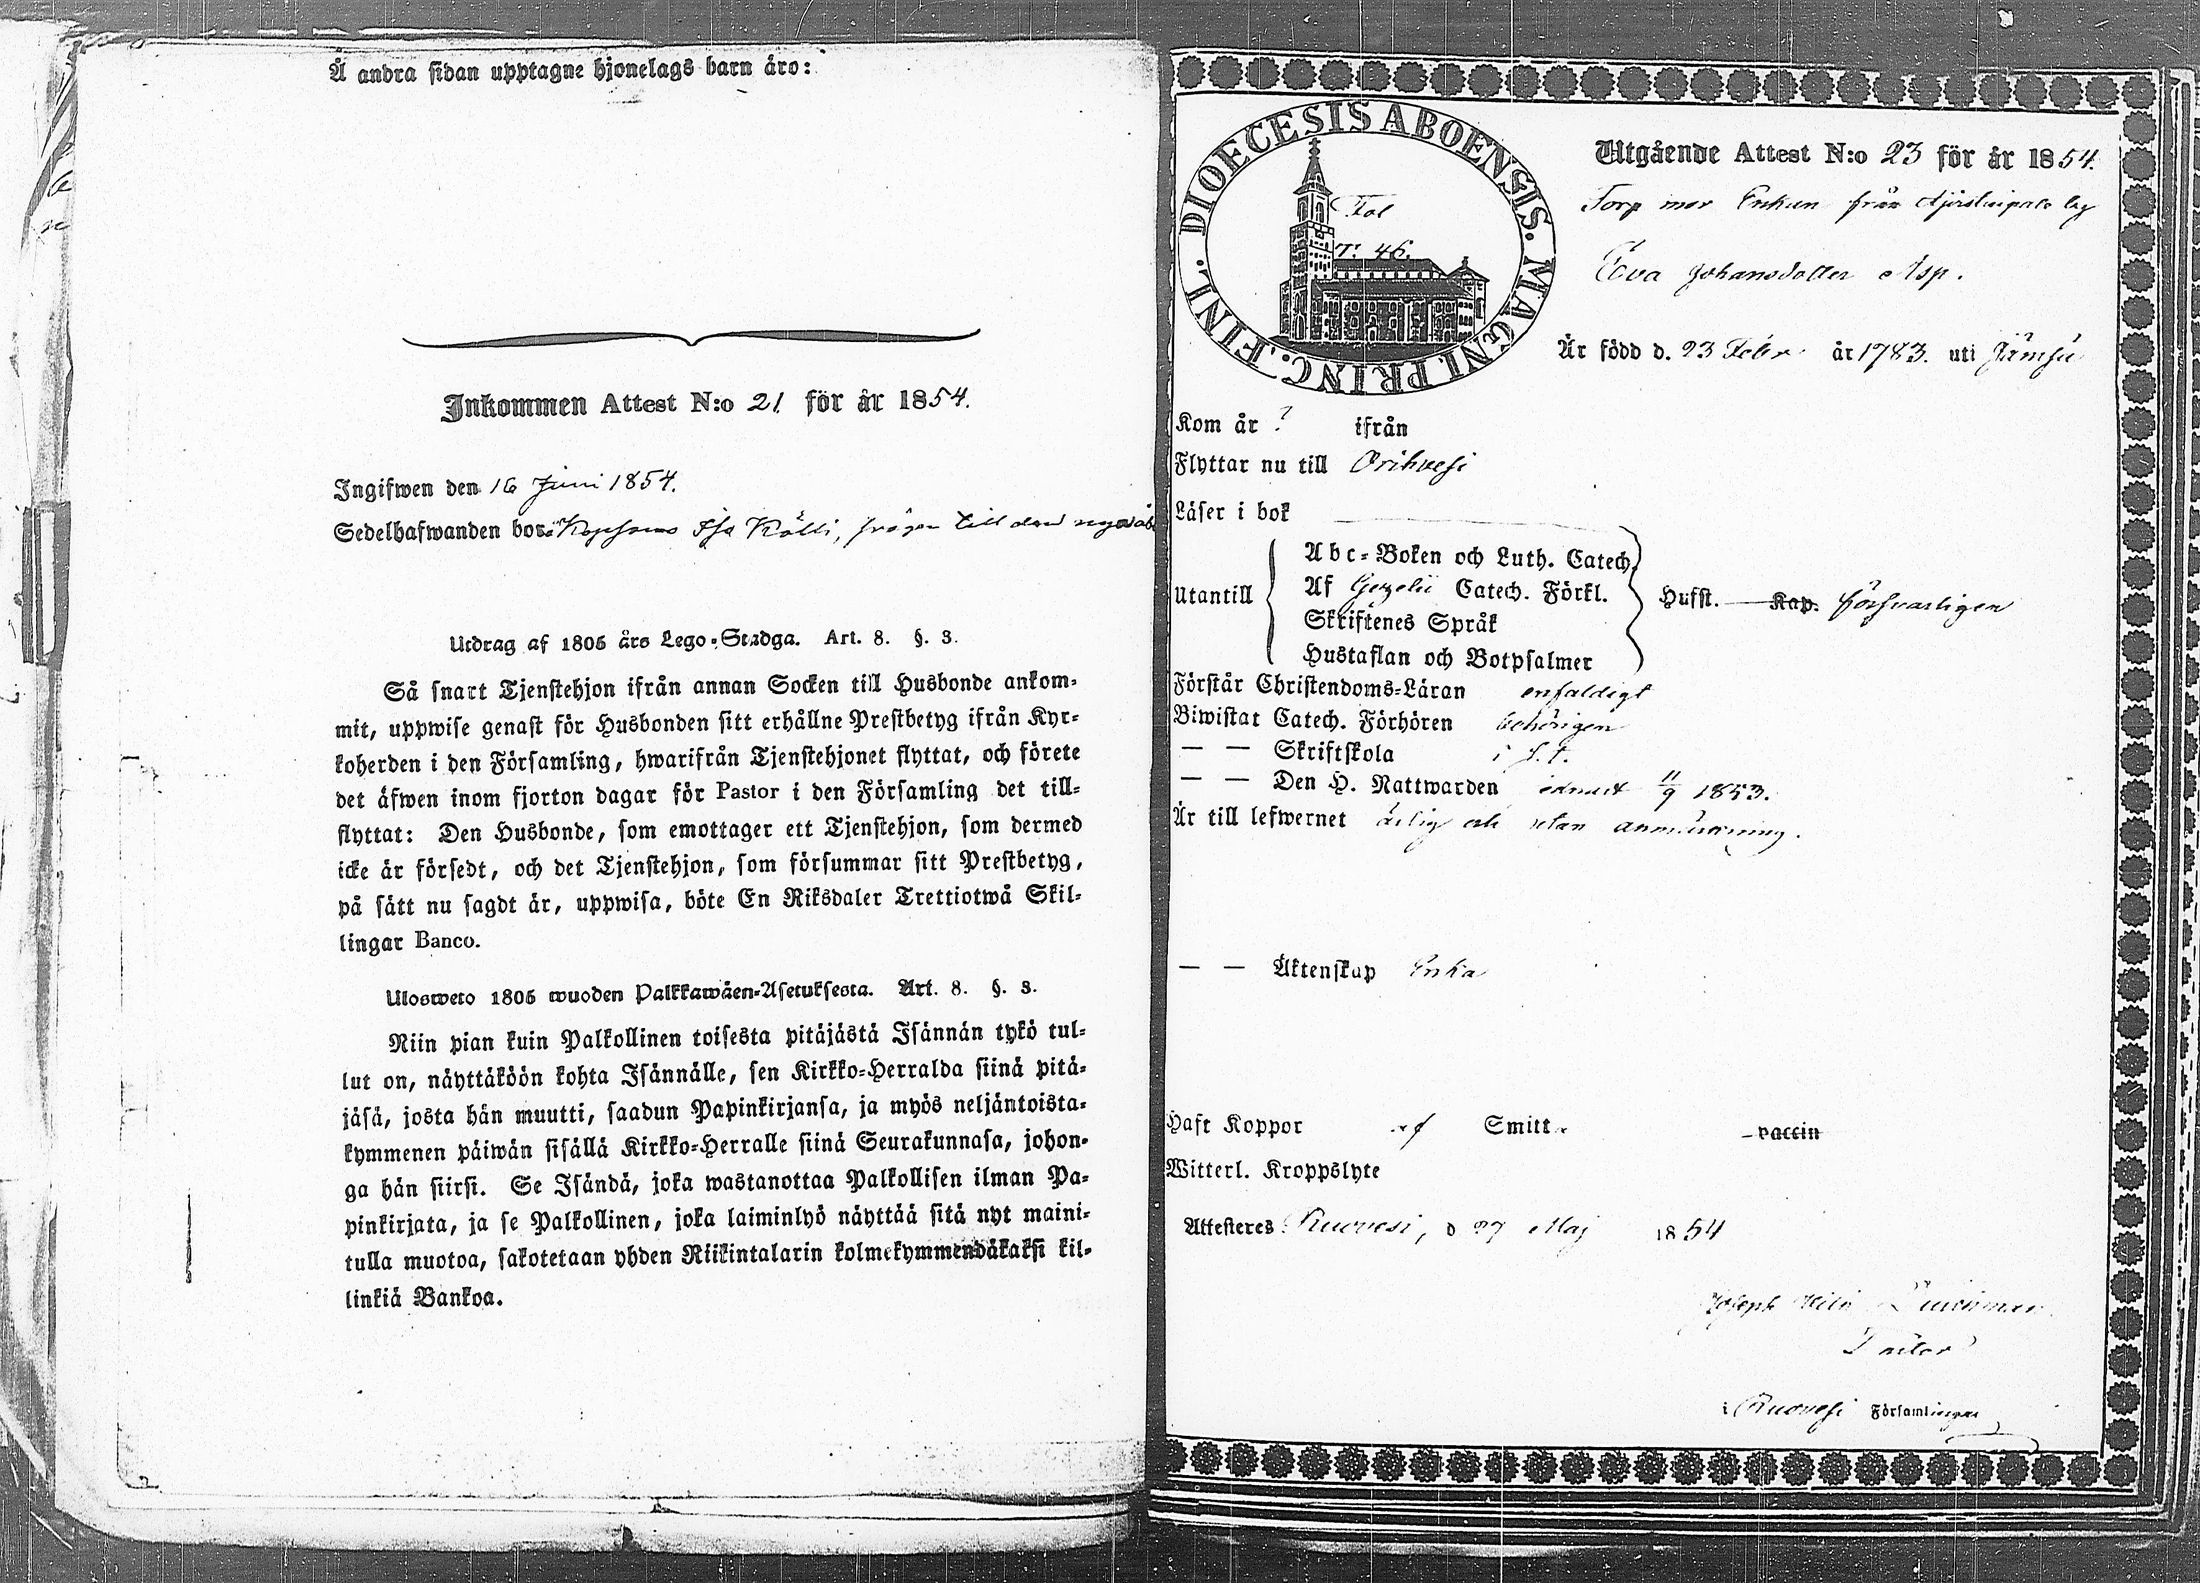 Å andra sidan upptagne hjonelags barn äro:
Inkommen Attest N:o 21 för år 1854.
Ingifwen den 16 Juni 1854.
Sedelhafwanden bor Iso Källi, till den
Utdrag af 1805 års Lego-Stadga. Art. 8. §. 3.
Så snart Tjenstehjon ifrån annan Socken till Husbonde ankom-
mit, uppwise genast för Husbonden sitt erhållne Prestbetyg ifrån Kyr-
koherden i den Församling, hwarifrån Tjenstehjonet flyttat, och förete
det äfwen inom fjorton dagar för Pastor i den Församling det till-
flyttat: Den Husbonde, som emottager ett Tjenstehjon, som dermed
icke är försedt, och det Tjenstehjon, som försummar sitt Prestbetyg,
på sätt nu sagdt är, uppwisa, böte En Riksdaler Trettiotwå Skil-
lingar Banco.
Ulosweto 1805 wuoden Palkkawäen-Asetuksesta. Art. 8. §. 3.
Niin pian kuin Palkollinen toisesta pitäjästä Isännän tykö tul-
lut on, näyttäköön kohta Isännälle, sen Kirkko-Herralda siinä pitä-
jäsä, josta hän muutti, saadun Papinkirjansa, ja myös neljäntoista-
kymmenen päiwän sisällä Kirkko-Herralle siinä Seurakunnasa, johon-
ga hän siirsi. Se Isändä, joka wastanottaa Palkollisen ilman Pa-
pinkirjata, ja se Palkollinen, joka laiminlyö näyttää sitä nyt maini-
tulla muotoa, sakotetaan yhden Riikintalarin kolmekymmendäkaksi kil-
linkiä Bankoa.
DIOECESIS ABOENSIS. MAGNI PRINC. FINL.
Fol
T. 46.
Utgående Attest N:o 23 för år 1854.
Torp mor Enkan från by
Eva Johansdotter Asp.
Är född d. 23 Febr år 1783. uti Jämsä
Kom år ? ifrån
Flyttar nu till Orihvesi
Läser i bok
Utantill
Abc-Boken och Luth. Catech.
Af Gezelii Catech. Förkl.
Skriftenes Språk
Hustaflan och Botpsalmer
Hufst. Kap. försvarligen
Förstår Christendoms-Läran enfaldigt
Biwistat Catech. Förhören behörigen
— — Skriftskola i s. t.
— — Den H. Nattwarden 11/9 1853.
Är till lefwernet ärlig och utan anmärkning.
— — Äktenskap Enka
Haft Koppor af Smitt. – vaccin
Witterl. Kroppslyte
Attesteres Ruovesi, d 27 Maj 1854
Joseph
Pastor
i Ruovesi Församlingar